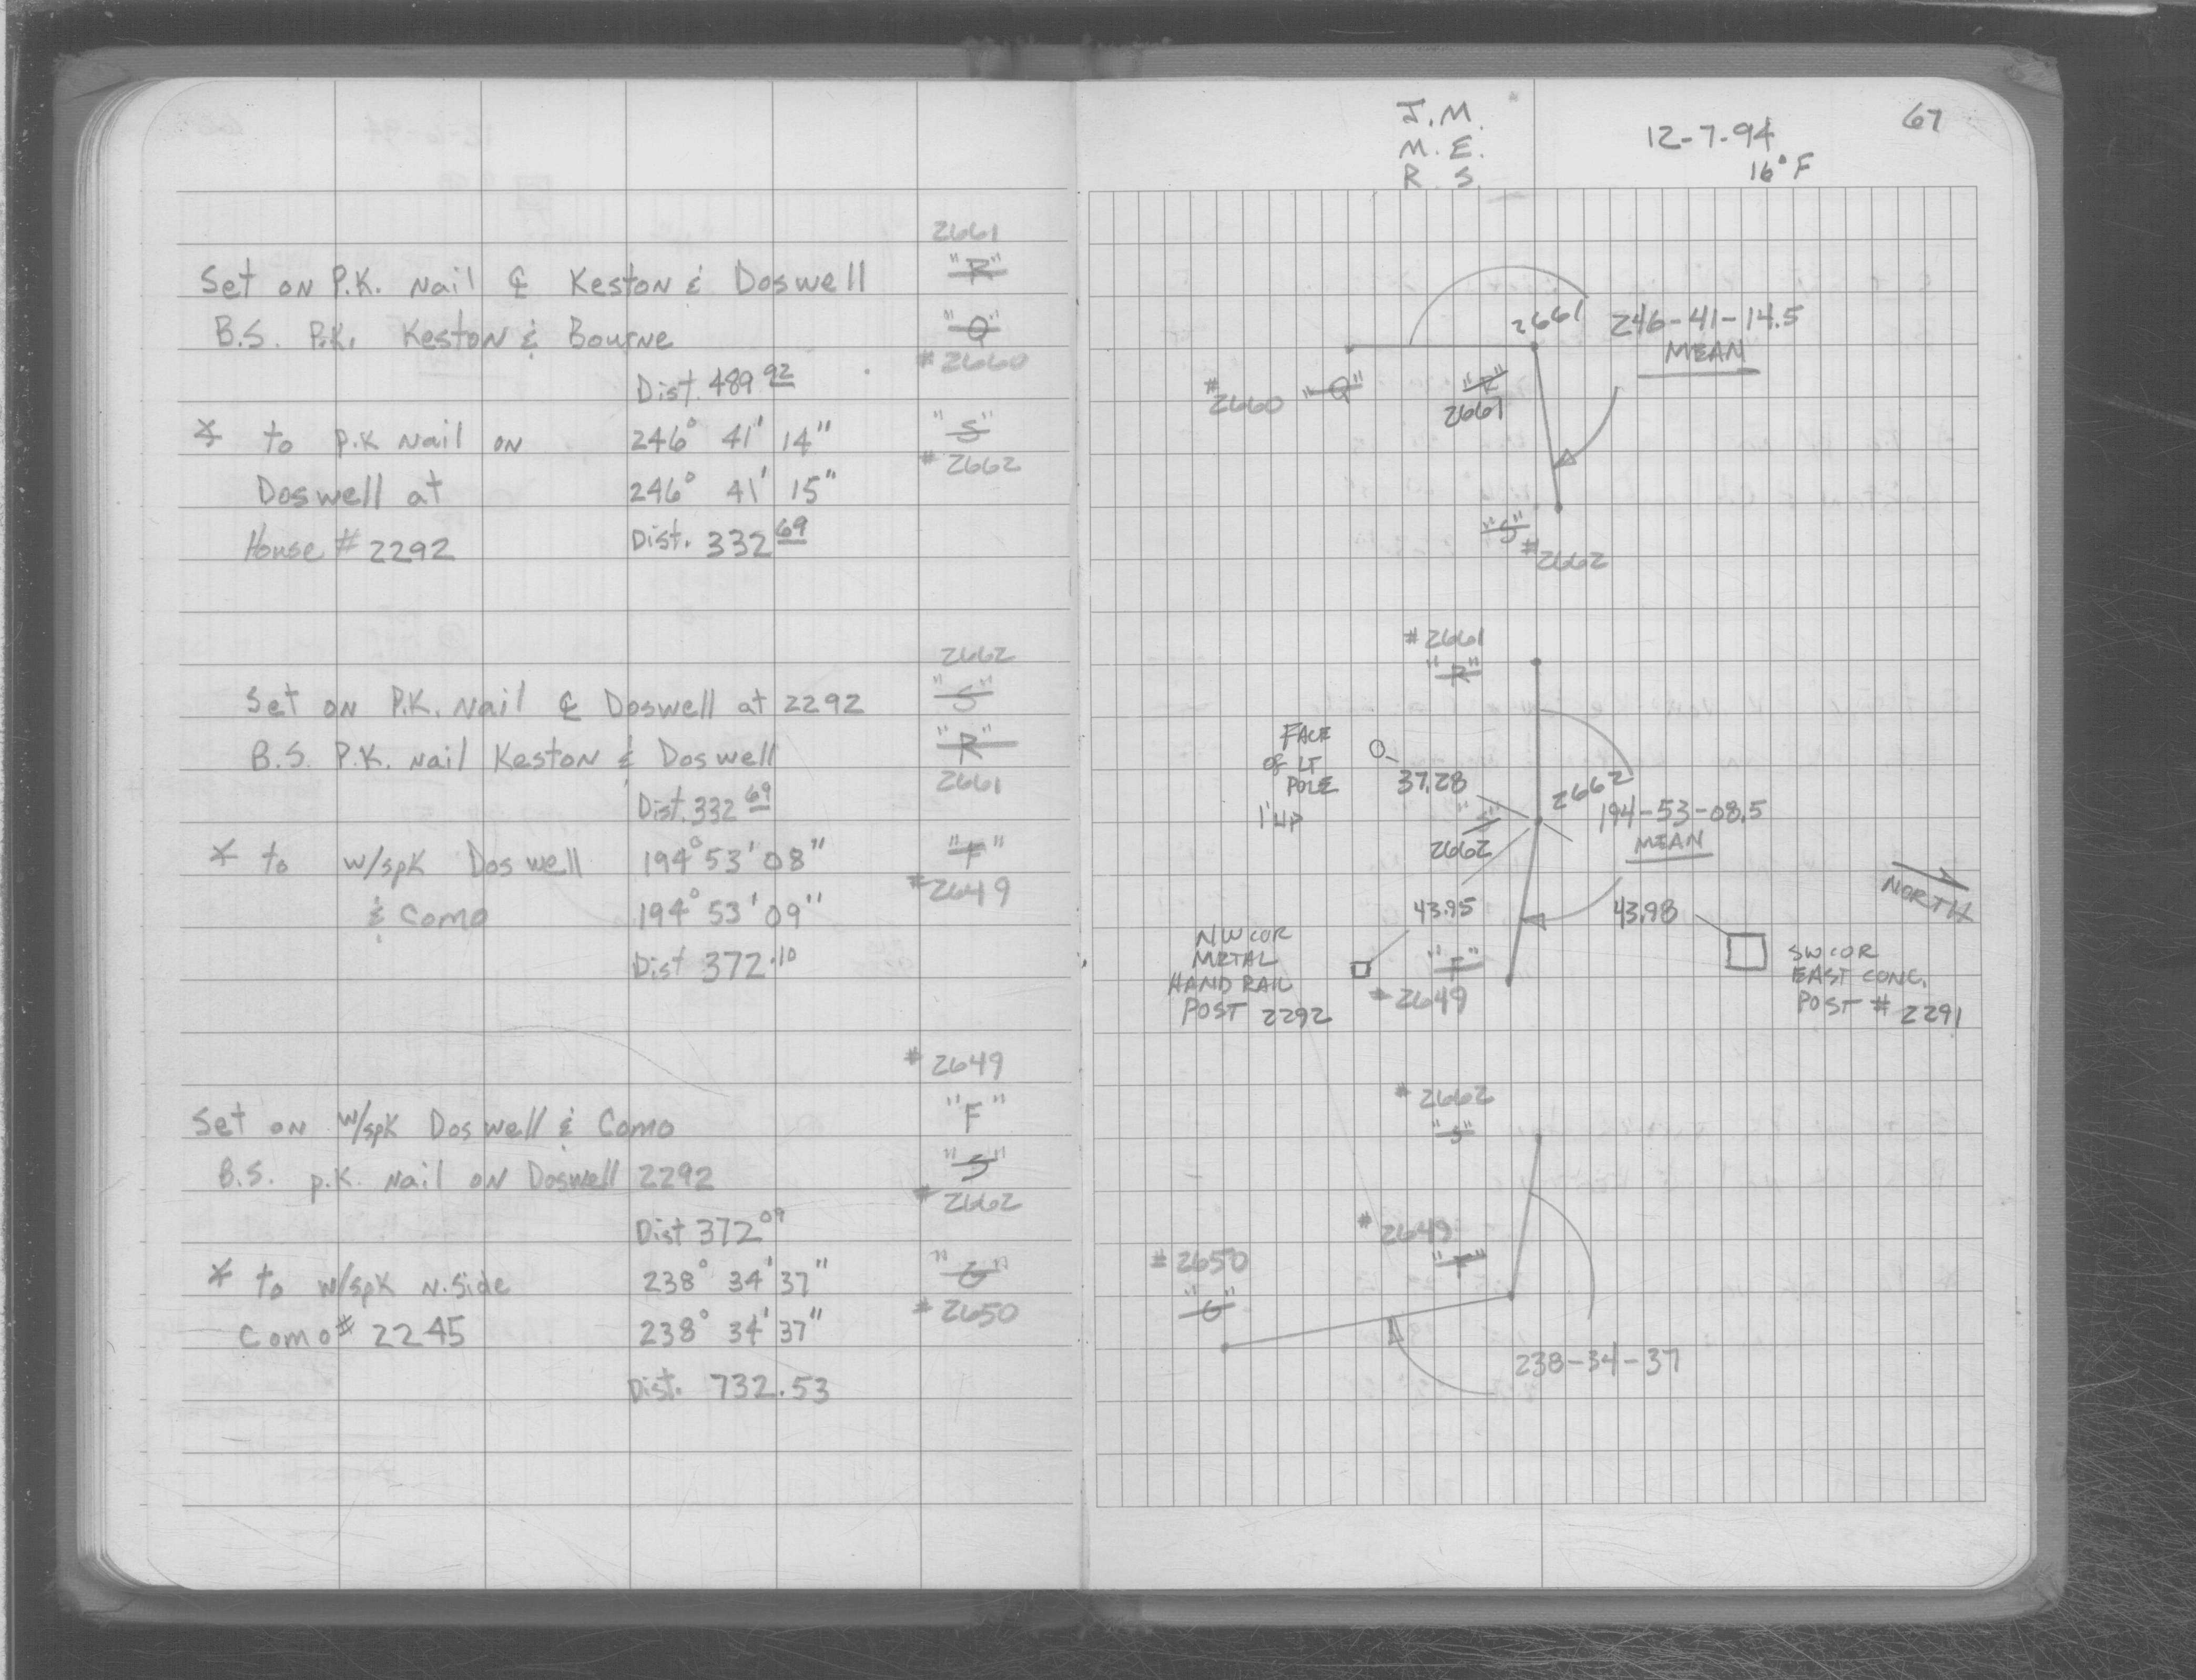 2661
Set on P.K. Nail ℄ Keston & Doswell "R"
B.S. P.K. Keston & Bourne "Q"
Dist. 489 92 #2660
∡ to P.K Nail on 246° 41' 14" "S"
#2662
Doswell at 246° 41' 15"
House # 2292 Dist. 332 69
2662
Set on P.K. Nail ℄ Doswell at 2292 "S"
B.S. P.K. Nail Keston & Doswell "R"
2661
Dist. 332 69
∡ to w/spk Doswell 194° 53' 08" "F"
#2649
& Como 194° 53' 09"
Dist 372.10
#2649
Set on w/spk Doswell & Como "F"
B.S. p.K. Nail on Doswell 2292 "S"
#2662
Dist 372 09
∡ to w/spk N.Side 238° 34' 37" "G"
Como # 2245 238° 34' 37" #2650
Dist. 732.53
J.M.
M.E.
R.S.
12-7-94
16°F
67
2661
246-41-14.5
MEAN
#2660 "Q"
"R"
2661
"S"
#2662
#2661
"R"
FACE
of LT
POLE
1' UP
37.28
2662
"S"
2662
194-53-08.5
MEAN
NORTH
43.95
43.98
NW COR
METAL
HAND RAIL
POST 2292
"F"
#2649
SW COR
EAST CONC.
POST # 2291
#2662
"S"
#2649
"F"
#2650
"G"
238-34-37